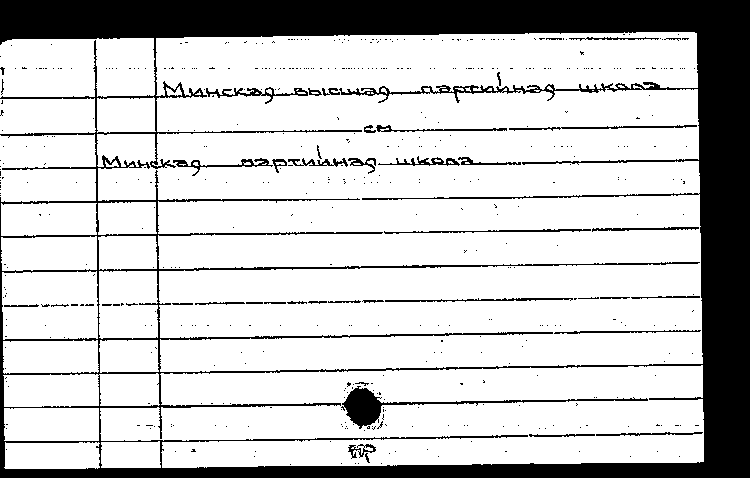 Минская высшая партийная школа
см
Минская партийная школа